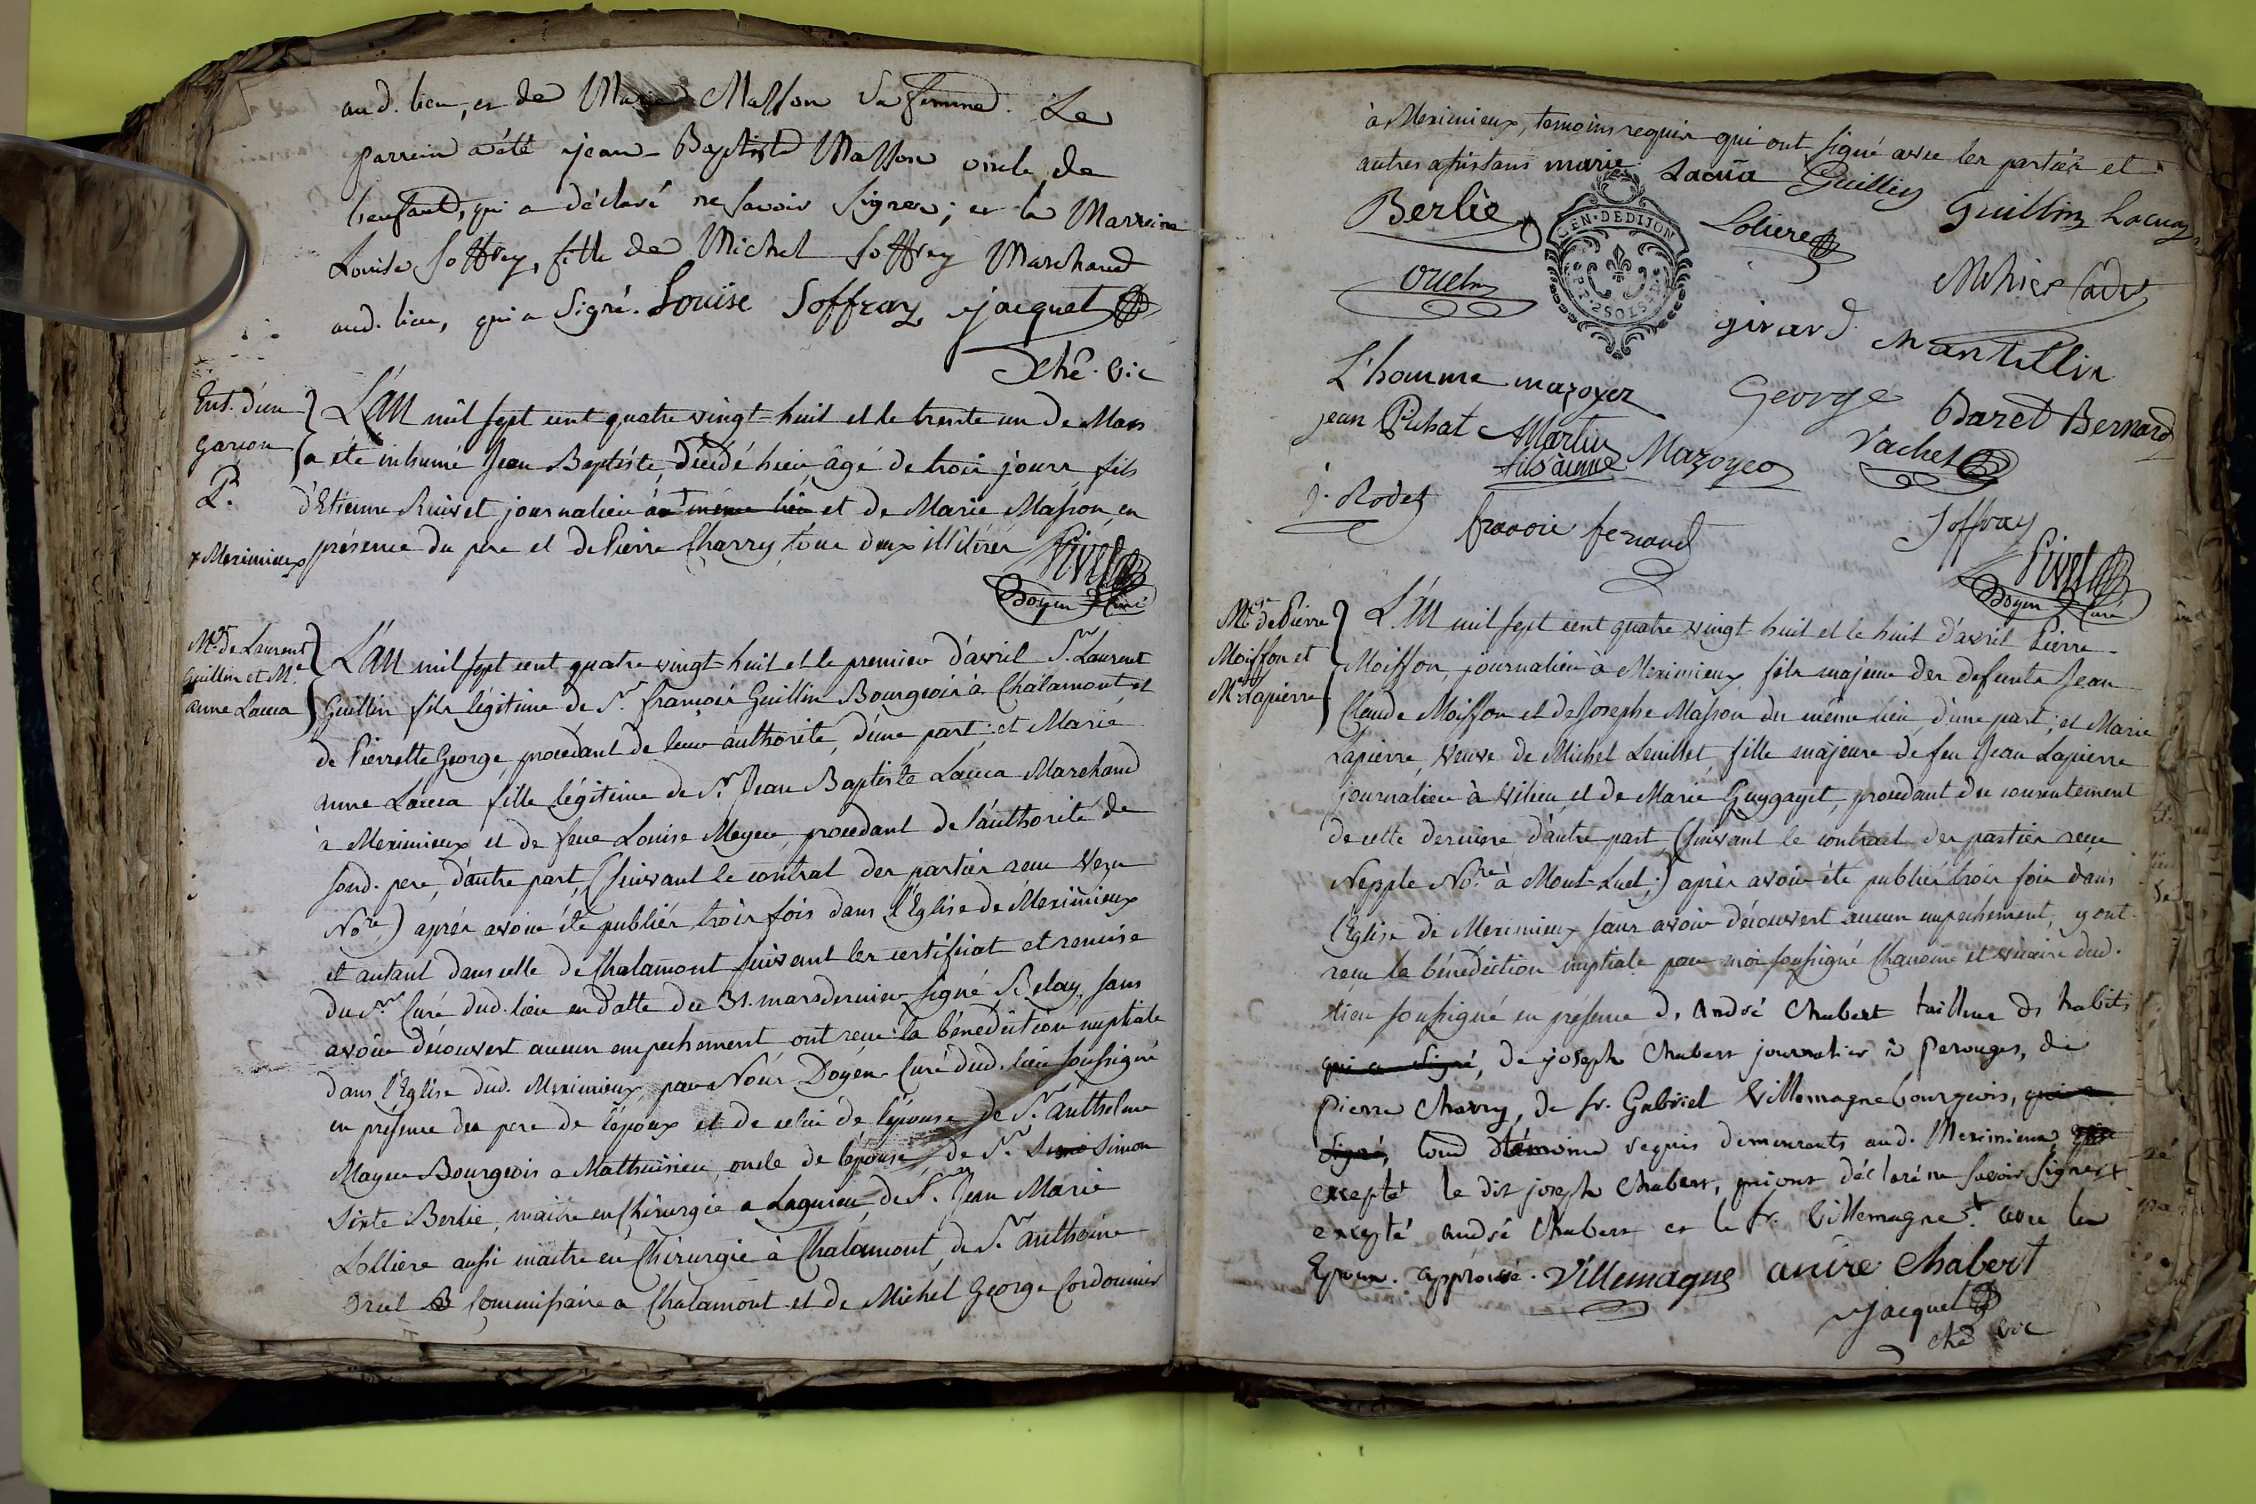 aud. lieu, et de Marie Masson sa femme. Le
parrein a été jean-Baptiste Masson oncle de
l'enfant, qui a déclaré ne savoir signer; et la Marreine
Louise Soffrey, fille de Michel Soffrey Marchand
aud. lieu, qui a signé. Louise Soffray Jacquet
che. vic
Ent. d'un
garçon
P.
x Meximieux
L'an mil sept cent quatre vingt-huit et le trente un de Mars
a été inhumé Jean Baptiste, décédé hier, âgé de trois jours fils
d'Etienne Ruivet journalier au même lieu et de Marie Masson, en
présence du pere et de Pierre Charry tous deux illitérés
Pivet
Doyen Curé
Mge de Laurent
Guillin et Me
anne Lacua
L'an mil sept cent quatre vingt-huit et le premier d'avril Sr. Laurent
Guillin fils légitime de Sr. françois Guillin Bourgeois à Chalamont, et
de Pierrette George procédant de leur authorité, d'une part; et Marie
anne Lacua fille légitime de Sr. Jean Baptiste Lacua Marchand
à Meximieux et de feue Louise Mayeu, procedant de l'authorité de
sond. pere, d'autre part, (suivant le contrat des parties recu
Nore) après avoir été publiés trois fois dans l'Eglise de Meximieux
et autant dans celle de Chalamont suivant les certificat et remise
du Sr. Curé dud. lieu en datte du 31. mars dernier signé sans
avoir découvert aucun empechement ont recu la bénédiction nuptiale
dans l'Eglise dud. Meximieux, par Nous Doyen Curé dud. lieu soussigné
en présence du pere de l'époux et de celui de l'épouse, de Sr. anthelme
Mayeu Bourgeois a oncle de l'épouse, de Sr. Simon
Sixte Berlie, maitre en Chirurgie a Lagnieu de Sr. Jean Marie
Lolliere aussi maitre en Chirurgie à Chalamont, de Sr. anthoine
Oruel Commissaire a Chalamont et de Michel George Cordonnier
à Meximieux, temoins requis qui ont signé avec les parties et
autres assistans marie Lacua Guillin
Berlie Loliere Guillin Lacua
GEN. DE DIJON
Oruel
girard Mantellin
L'homme mazoyer George Baret Bernard
jean Pichat Martin
fils ainné Mazoyer Vachet
j. Rodet
françois fenaud Soffray
Pivet
Doyen Curé
Mge de Pierre
Moisson et
Me Lapierre
L'An mil sept cent quatre vingt huit et le huit d'avril Pierre
Moisson, journalier à Meximieux fils majeur des defunts Jean
Claude Moisson et de Josephe Masson du même lieu, d'une part; et Marie
Lapierre, veuve de Michel fille majeure de feu Jean Lapierre
journalier à Vilieu, et de Marie Guygayet, procedant du consentement
de cette derniere d'autre part (suivant le contrat des parties recu
Nepple Nore. à Mont-Luel;) après avoir été publiés trois fois dans
l'Eglise de Meximieux sans avoir découvert aucun empechement, y ont
recu la bénédiction nuptiale par moi soussigné Chanoine et vicaire dud.
lieu soussigné en présence d'André Chabert tailleur ds habits
qui a signé, de joseph Chabert journalier à Perouges, de
pierre Charry, de Sr. Gabriel Villemagne bourgeois, qui a
signé, temoins requis demeurants aud. Meximieux
excepté le dit joseph Chabert, qui ont déclaré ne savoir signer
excepté andré Chabert et le Sr. Villemagne avec les
Epoux. approuvé. Villemagne andre Chabert
Jacquet
che vic